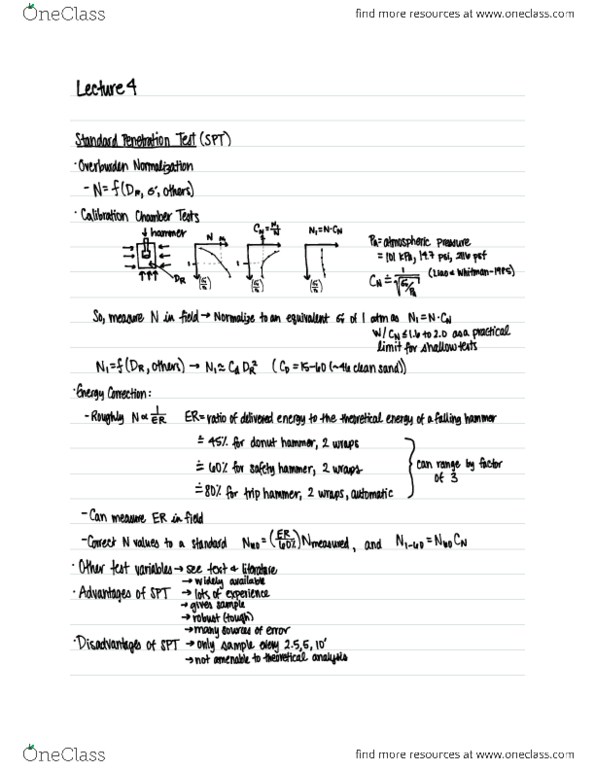 OneClass
find more resources at www.oneclass.com
Lecture 4
Standard Penetration Test (SPT)
· Overburden Normalization
- N = f(DR, σ', others)
· Calibration Chamber Tests
↓ hammer
DR
N
1
CN = N1/N
1
N1 = N·CN
Pa = atmospheric pressure
= 101 kPa, 14.7 psi, 2116 psf
(Liao & Whitman - 1985)
So, measure N in field → Normalize to an equivalent of 1 atm as N1 = N·CN
w/ CN ≤ 1.6 to 2.0 as a practical
limit for shallow tests
N1 = f(DR, others) → N1 ≃ Cd DR² (CD = 15-60 (~46 clean sand))
· Energy Correction:
- Roughly N ∝ 1/ER ER = ratio of delivered energy to the theoretical energy of a falling hammer
≐ 45% for donut hammer, 2 wraps
≐ 60% for safety hammer, 2 wraps
≐ 80% for trip hammer, 2 wraps, automatic
can range by factor
of 3
- Can measure ER in field
- Correct N values to a standard N60 = (ER/60%) Nmeasured, and N1-60 = N60 CN
· Other test variables → see text & literature
→ widely available
· Advantages of SPT → lots of experience
→ gives sample
→ robust (tough)
→ many sources of error
· Disadvantages of SPT → only sample every 2.5, 5, 10'
→ not amenable to theoretical analysis
OneClass
find more resources at www.oneclass.com